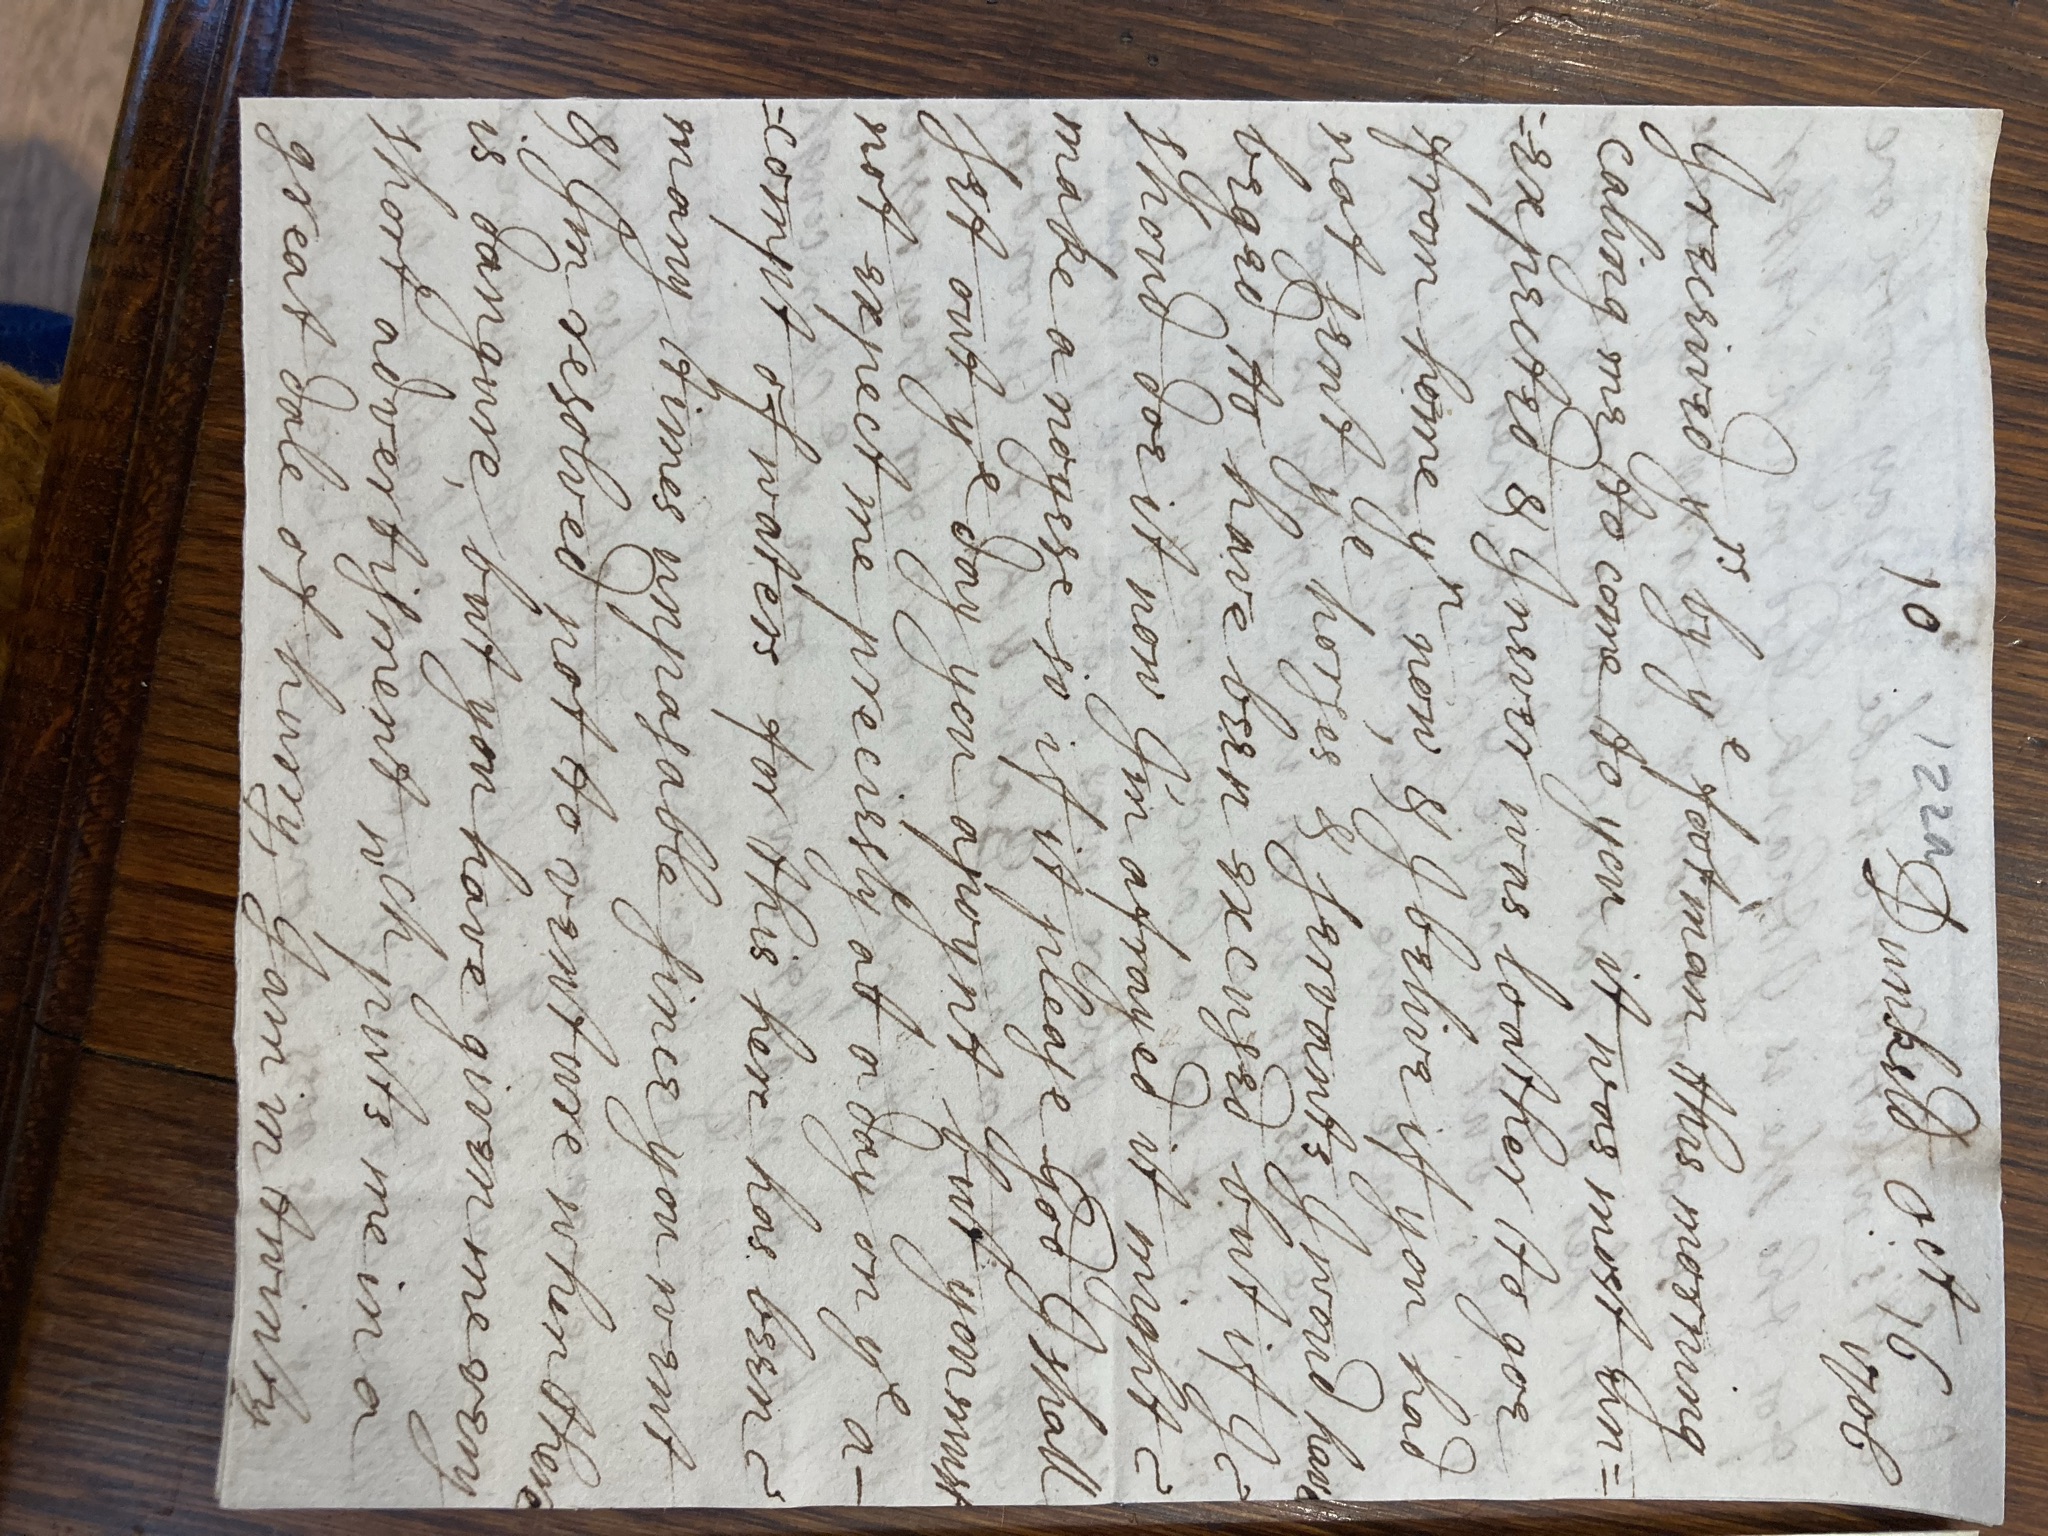 10 122a Dunkeld Oct: 16
1706
I received yrs by ye footman this morning
caling me to come to you it was most un=
=expected & I never was loather to goe
from home yn now, & I belive if you had
not sent ye horses & servants I woud have
beged to have been excused but if I
shoud doe it now I'm afrayed it might
make a noyese so if it please God I shall
set out ye day you apoynt but you must
not expect me preciesly at a day on ye a-
=compt of waters for this here has been
many times unpasable since you went
& I'm resolved not to venture when there
is dangure, but you have given me very
short advertisment wch puts me in a
great dale of hurry, I am in twinty